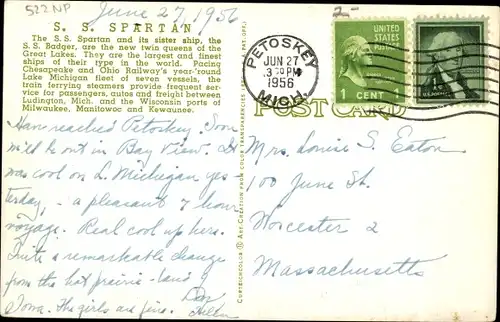 522 NP
June 27, 1956
2-
S. S. SPARTAN
The S. S. Spartan and its sister ship, the
S. S. Badger, are the new twin queens of the
Great Lakes. They are the largest and finest
ships of their type in the world. Pacing
Chesapeake and Ohio Railway's year-round
Lake Michigan fleet of seven vessels, the
train ferrying steamers provide frequent ser-
vice for passengers, autos and freight between
Ludington, Mich. and the Wisconsin ports of
Milwaukee, Manitowoc and Kewaunee.
PETOSKEY
JUN 27
3 30 PM
1956
MICH.
UNITED
STATES
POSTAGE
1 CENT 1
POST CARD
Have reached Petoskey. Soon
will be out in Bay View. It
was cool on L. Michigan yes-
terday, - a pleasant 7 hour
voyage. Real cool up here.
Quite a remarkable change
from the hot prairie-land
Iowa. The girls are fine.
Helen
Mrs. Louise S. Eaton
100 June St.
Worcester 2
Massachusetts
CURTEICHCOLOR ® ART-CREATION FROM COLOR TRANSPARENCIES